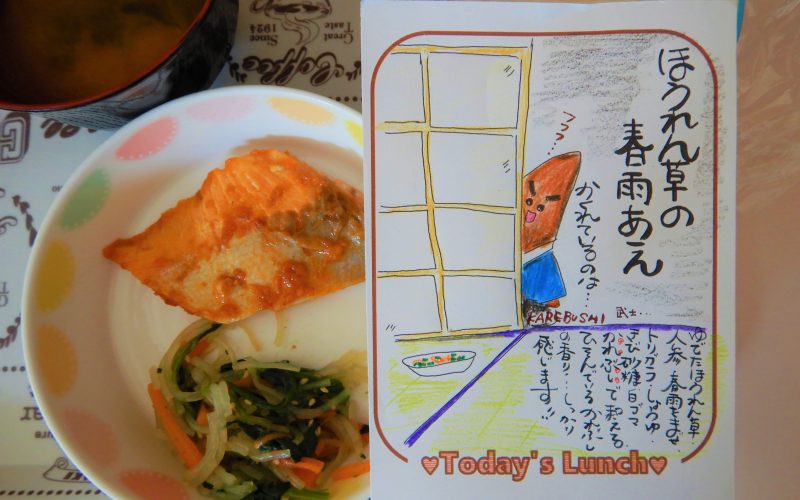 Great Taste
Since 1924
Coffee
ほうれん草の
春雨あえ
フフフ…
かくれているのは…
KAREBUSHI
武士…
ゆでたほうれん草
人参、春雨をまぜ
トリガラ・しょうゆ・
きび砂糖・白ゴマ
かれぶしで和える。
ひそんでいるかれぶし
の香り…しっかり
感じます!!
Today's Lunch